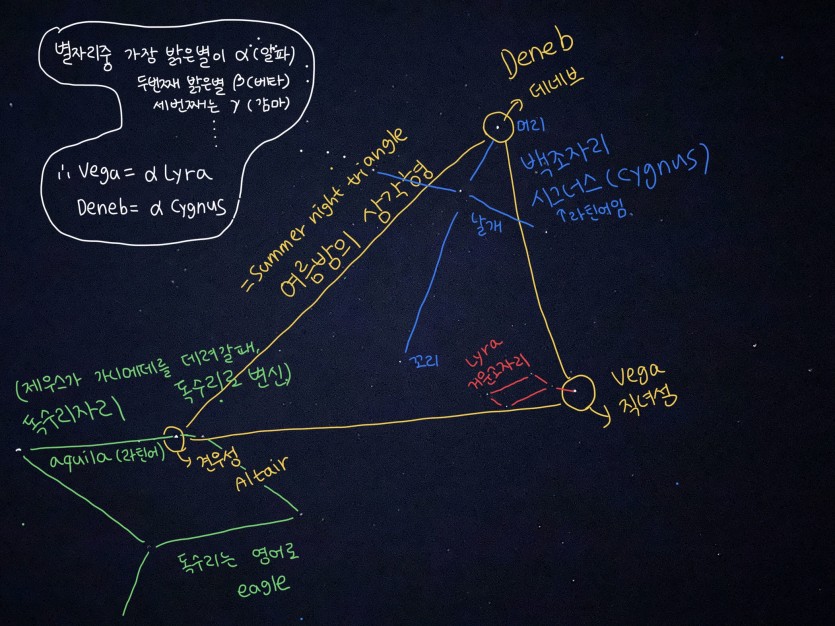 별자리중 가장 밝은별이 α(알파)
두번째 밝은별 β(베타)
세번째는 γ(감마)
∴ Vega = α Lyra
Deneb = α Cygnus
Deneb
데네브
머리
백조자리
시그너스(Cygnus)
↑라틴어임.
날개
꼬리
= Summer night triangle
여름밤의 삼각형
Lyra
거문고자리
Vega
직녀성
(제우스가 가니메데를 데려갈때,
독수리로 변신)
독수리자리
aquila (라틴어)
견우성
Altair
독수리는 영어로
eagle